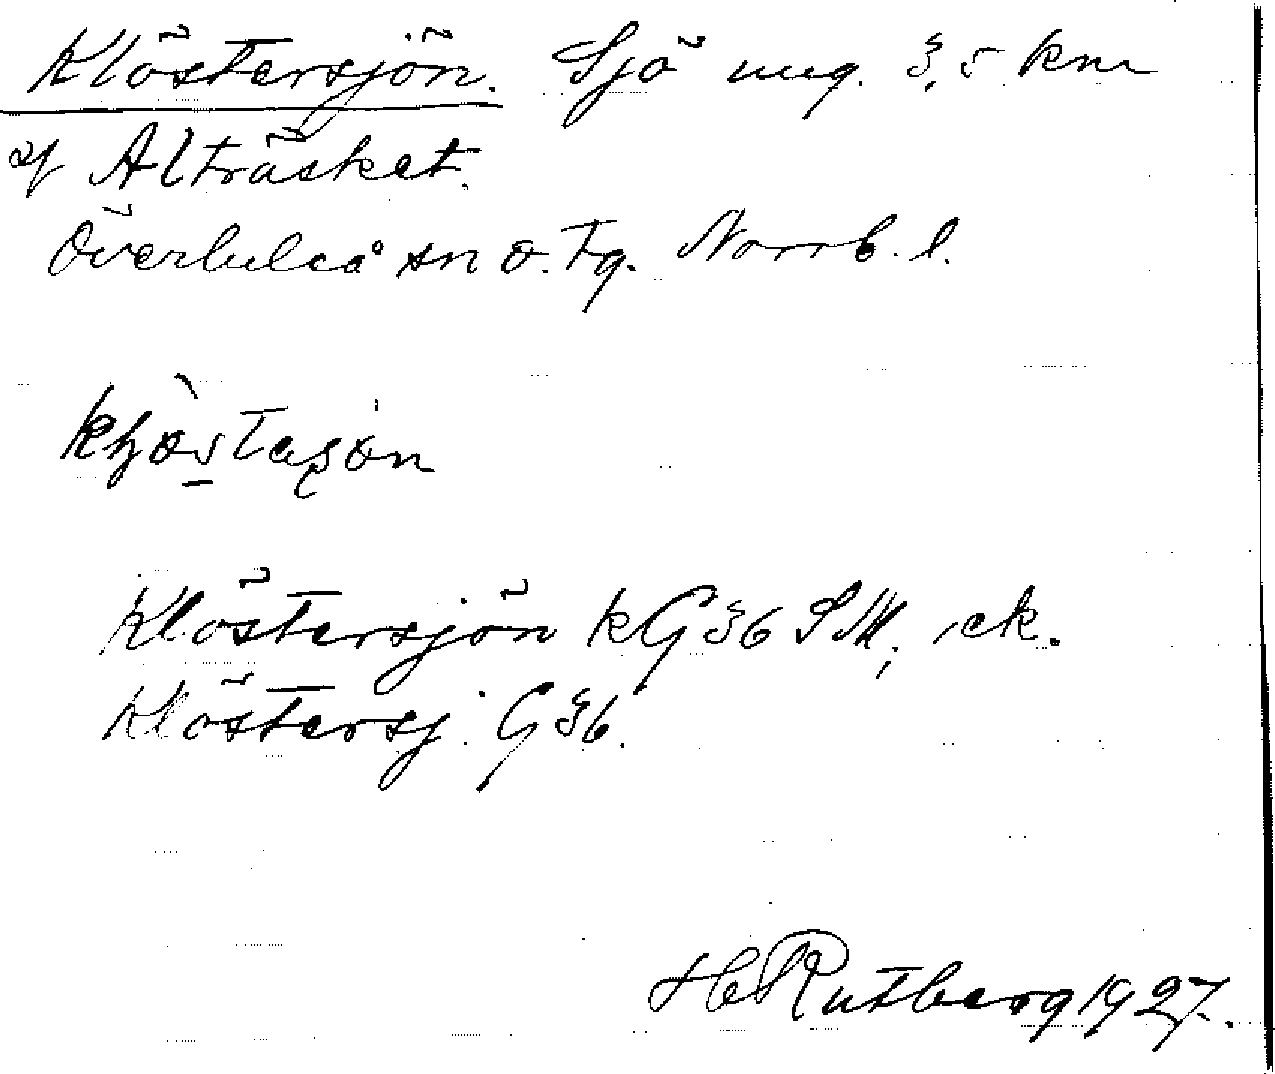 Klöstersjön. Sjö ung. 3,5 km
af Alträsket.
Överluleå sn o. tg. Norrb. l.
Klöstersjön kG 36 SM; ek.
Klöstersj. G 36.
H Rutberg 1927.